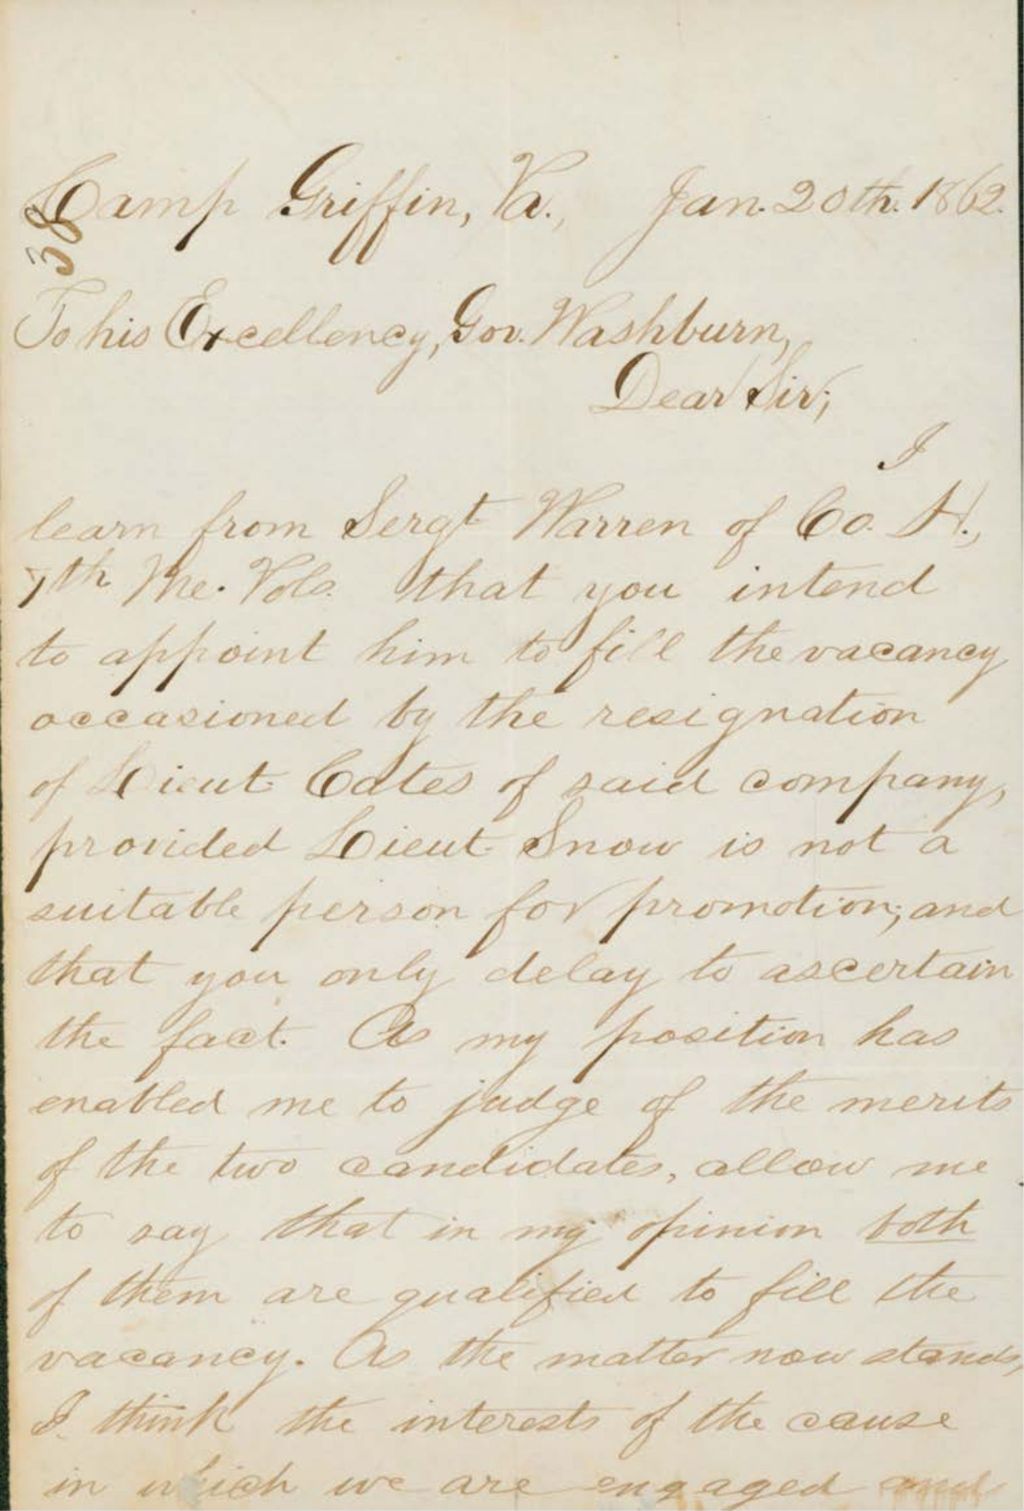 Camp Griffin, Va., Jan. 20th. 1862.
38
To his Excellency, Gov. Washburn,
Dear Sir;
I
learn from Sergt Warren of Co. H.,
7th Me. Vols. that you intend
to appoint him to fill the vacancy
occasioned by the resignation
of Lieut. Cates of said company,
provided Lieut. Snow is not a
suitable person for promotion; and
that you only delay to ascertain
the fact. As my position has
enabled me to judge of the merits
of the two candidates, allow me
to say that in my opinion both
of them are qualified to fill the
vacancy. As the matter now stands,
I think the interests of the cause
in which we are engaged and